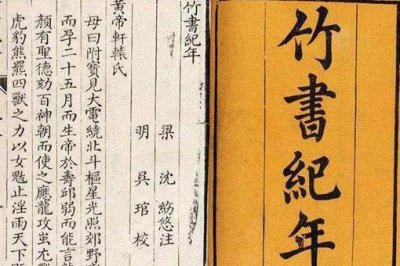 竹書紀年
竹書紀年
梁 沈 約 注
明 吳 琯 校
黃帝軒轅氏
母曰附寶見大電繞北斗樞星光照郊野
而孕二十五月而生帝於壽邱弱而能言龍
顏有聖德劾百神朝而使之應龍攻蚩尤
虎豹熊羆四獸之力以女魃止淫雨天下